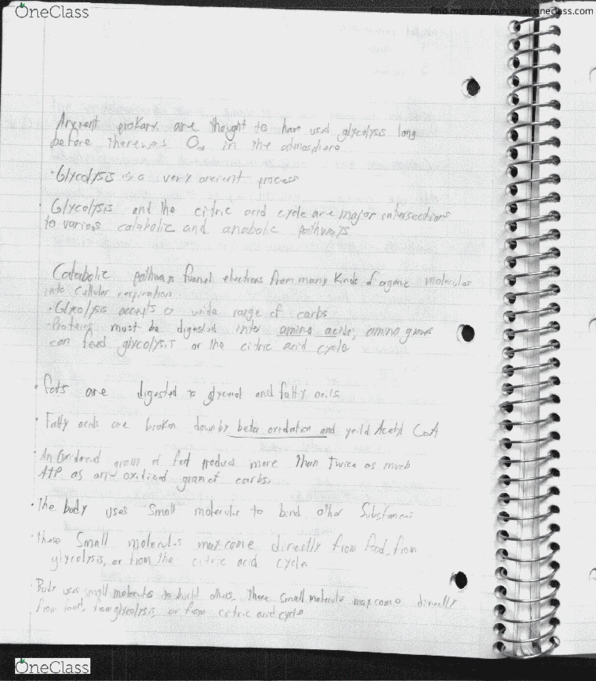 OneClass
find more resources at oneclass.com
Ancient prokary. are thought to have used glycolysis long
before there was O2 in the atmosphere
· Glycolysis is a very ancient process
· Glycolysis and the citric acid cycle are major intersections
to various catabolic and anabolic pathways
Catabolic pathways funnel electrons from many kinds of organic molecules
into cellular respiration
· Glycolysis accepts a wide range of carbs
· Proteins must be digested into amino acids, amino groups
can feed glycolysis or the citric acid cycle
· Fats are digested to glycerol and fatty acids
· Fatty acids are broken down by beta oxidation and yeild Acetyl CoA
· An oxidized gram of fat produces more than twice as much
ATP as an oxidized gram of carbs.
· The body uses small molecules to build other substances
· These small molecules may come directly from food, from
glycolysis, or from the citric acid cycle
· Body uses small molecules to build others. These small molecules may come directly
from food, from glycolysis or from citric acid cycle
OneClass